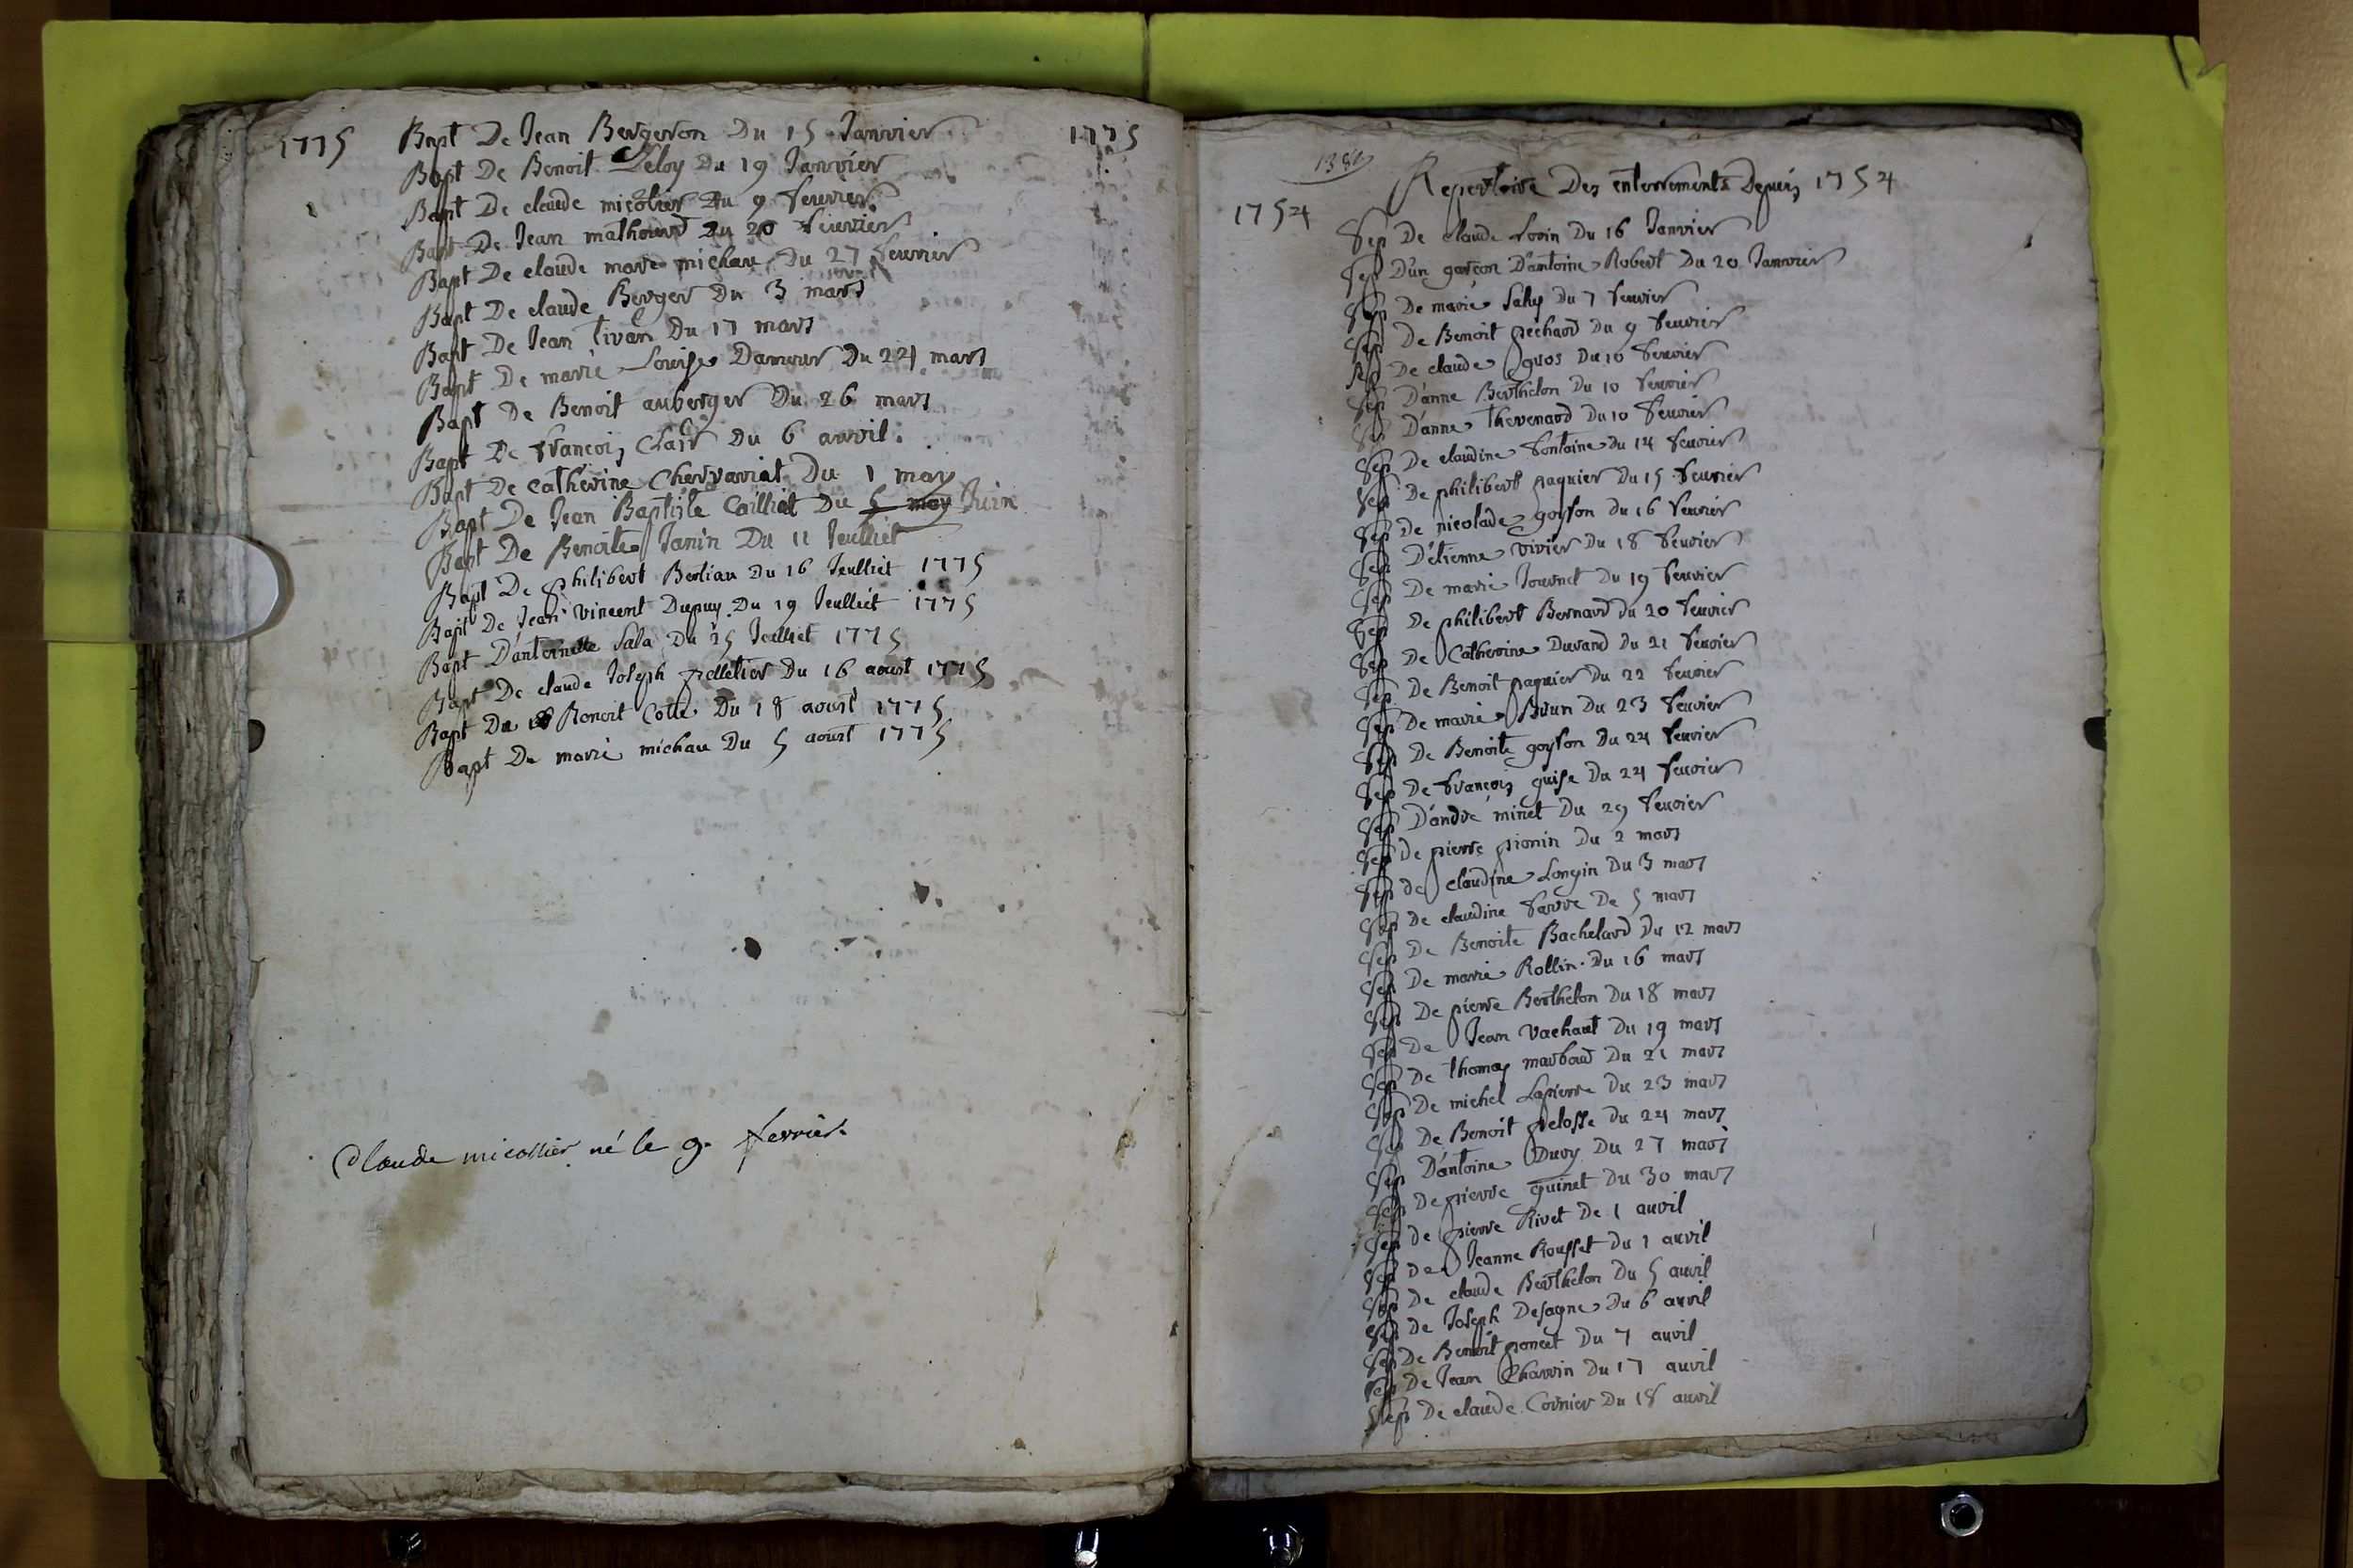 1775 Bapt De Jean Bergeron Du 15 Janvier 1775
Bapt De Benoit Deloy Du 19 Janvier
Bapt De claude micolier Du 9 feuvrier
Bapt De Jean mathourd Du 20 feuvrier
Bapt De claude mare michau Du 27 feuvrier
Bapt De claude Berger Du 3 mars
Bapt De Jean tivan Du 17 mars
Bapt De marie Louise Damour Du 24 mars
Bapt De Benoit auberger Du 26 mars
Bapt De francois Clair Du 6 auvril
Bapt De catherine Chervariat Du 1 may
Bapt De Jean Baptiste Cailliot Du 5 may Juin
Bapt De Benoite Janin Du 11 Jeulliet
Bapt De philibert Bertiau Du 16 Jeulliet 1775
Bapt De Jean vincent Dupuy Du 19 Jeulliet 1775
Bapt D'antoinette Sala Du 25 Jeulliet 1775
Bapt De claude Joseph pelletier Du 16 aoust 1775
Bapt De Benoit Cotte Du 18 aoust 1775
Bapt De marie michau Du 5 aoust 1775
Claude micollier né le 9. fevrier.
Repertoire Des enterrements Depuis 1754
1754
Sep De claude Lorin Du 16 Janvier
Sep D'un garcon D'antoine Robert Du 20 Janvier
Sep De marie Saly Du 7 feuvrier
Sep De Benoit pechard Du 9 feuvrier
Sep De claude gros Du 10 feuvrier
Sep D'anne Berthelon Du 10 feuvrier
Sep D'anne thevenard Du 10 feuvrier
Sep De claudine fontaine Du 14 feuvrier
Sep De philibert paquier Du 15 feuvrier
Sep De nicolade goyfon Du 16 feuvrier
Sep D'étienne vivier Du 18 feuvrier
Sep De marie Journet Du 19 feuvrier
Sep De philibert Bernard Du 20 feuvrier
Sep De Catherine Durand Du 21 feuvrier
Sep De Benoit paquier Du 22 feuvrier
Sep De marie Brun Du 23 feuvrier
Sep De Benoite goyfon Du 24 feuvrier
Sep De francois guise Du 24 feuvrier
Sep D'andre minet Du 29 feuvrier
Sep De pierre pionin Du 2 mars
Sep de claudine Longin Du 3 mars
Sep De claudine farre De 5 mars
Sep De Benoite Bachelard Du 12 mars
Sep De marie Rollin Du 16 mars
Sep De pierre Berthelon Du 18 mars
Sep De Jean Vachaut Du 19 mars
Sep De thomas marboud Du 21 mars
Sep De michel Lapierre Du 23 mars
Sep De Benoit pelosse Du 24 mars
Sep D'antoine Dury Du 27 mars
Sep De pierre guinet Du 30 mars
Sep de pierre Rivet De 1 auvil
Sep De Jeanne Rousset Du 1 auvril
Sep De claude Berthelon Du 5 auvil
Sep De Joseph Desagne Du 6 auvil
Sep De Benoit poncet Du 7 auvil
Sep De Jean Charvin Du 17 auvil
Sep De claude Cornier Du 18 auvil